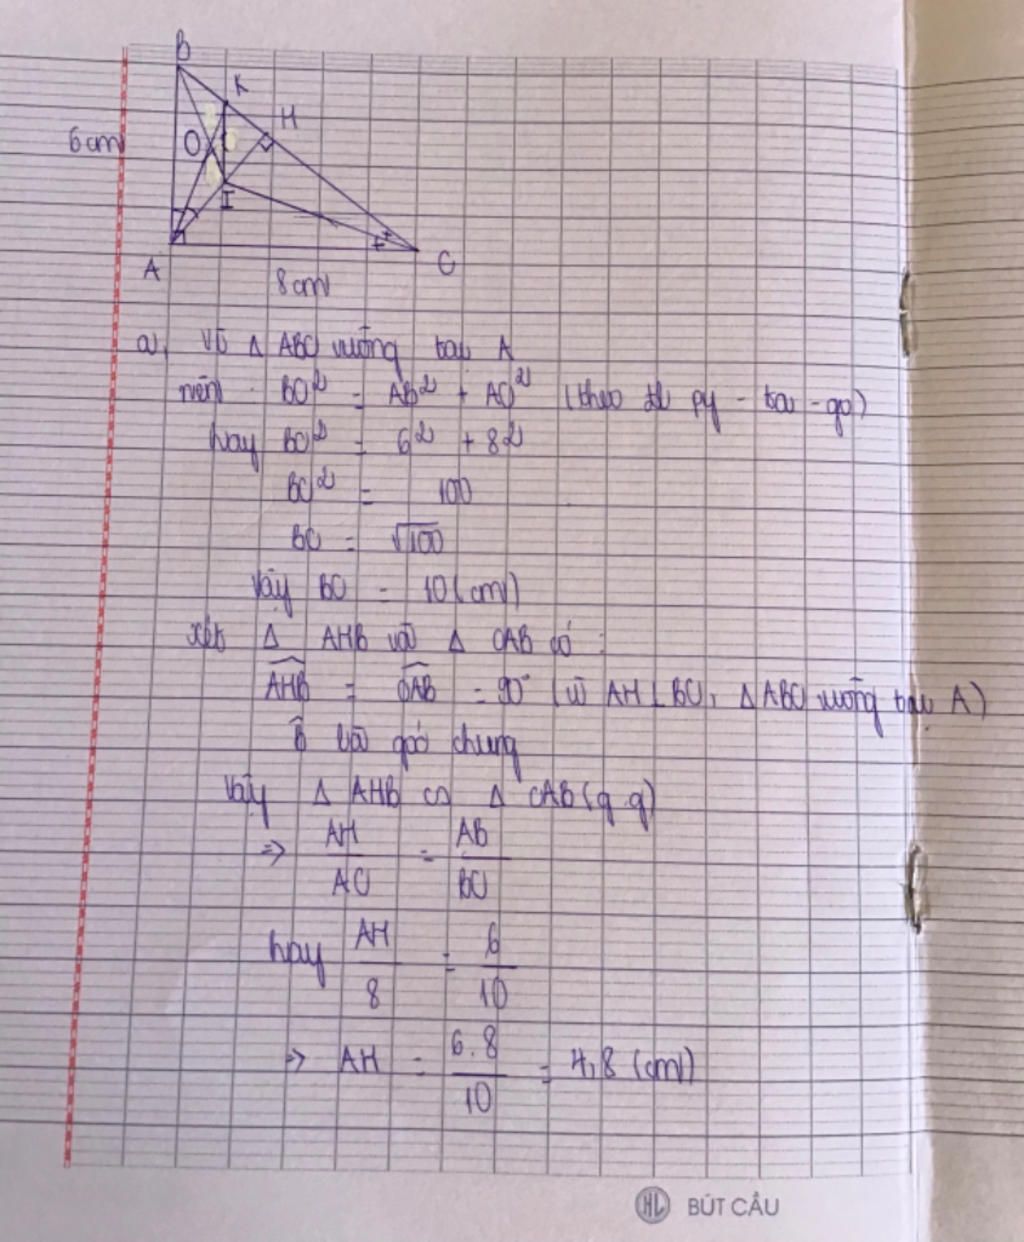 B
K
H
6cm
O
I
A
C
8cm
a, Vì Δ ABC vuông tại A
nên BC² = AB² + AC² (theo đl py - ta - go)
hay BC² = 6² + 8²
BC² = 100
BC = √100
Vậy BC = 10 (cm)
Xét Δ AHB và Δ CAB có :
AHB = CAB = 90° (vì AH ⊥ BC, Δ ABC vuông tại A)
B̂ là góc chung
Vậy Δ AHB ∽ Δ CAB (g.g)
=> AH/AC = AB/BC
hay AH/8 = 6/10
=> AH = 6.8/10 = 4,8 (cm)
HL BÚT CẦU